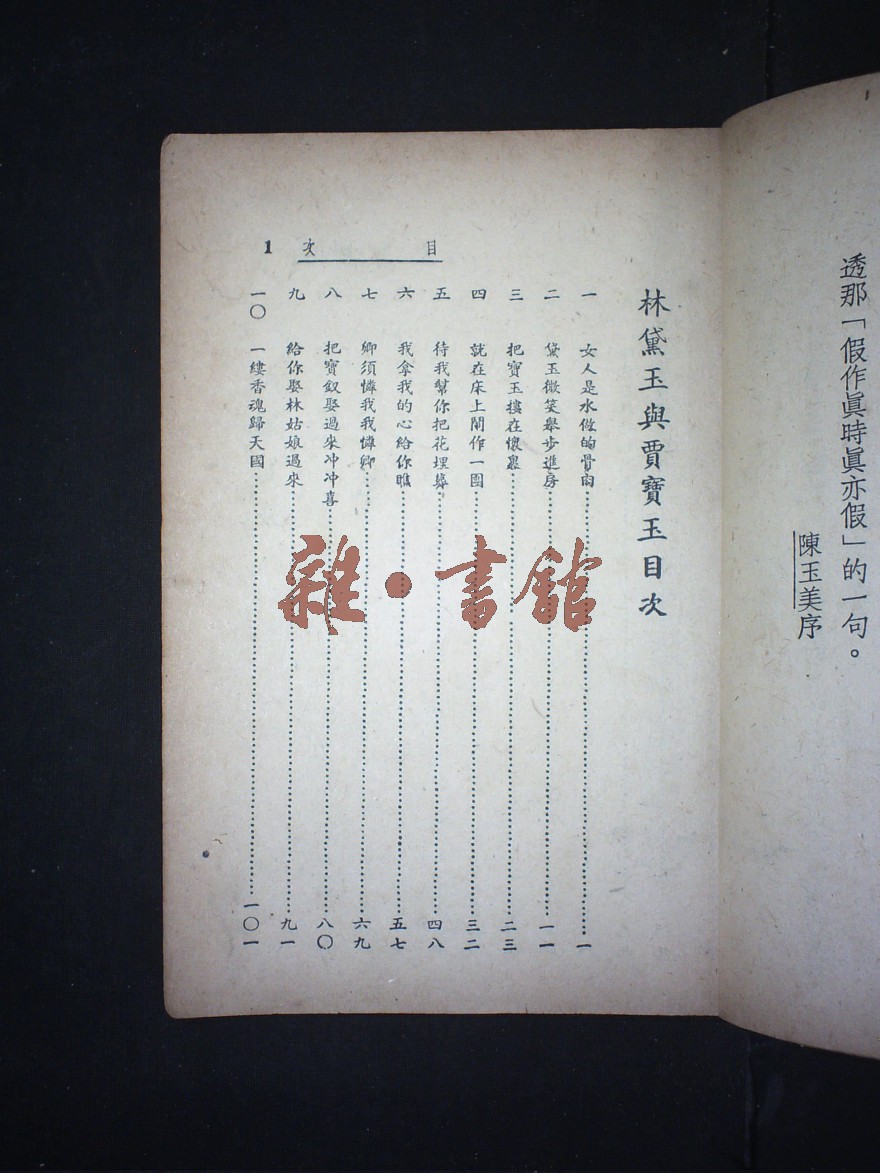 透那「假作眞時眞亦假」的一句。
陳玉美序
林黛玉與賈寶玉目次
一 女人是水做的骨肉 一
二 黛玉微笑舉步進房 一一
三 把寶玉摟在懷裏 二三
四 就在床上鬧作一團 三二
五 待我幫你把花埋葬 四八
六 我拿我的心給你瞧 五七
七 卿須憐我我憐卿 六九
八 把寶釵娶過來冲冲喜 八〇
九 給你娶林姑娘過來 九一
一〇 一縷香魂歸天國 一〇一
目次
1
雜·書館